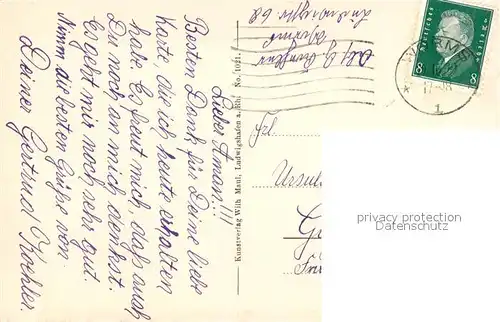 Lieber Aman!!!
Besten Dank für Deine liebe
Karte die ich heute erhalten
habe Es freut mich, daß auch
Du noch an mich denkst.
Es geht mir noch sehr gut
Nimm die besten Grüße von
Deiner Gertrud Koehler.
Kunstverlag Wilh. Maul, Ludwigshafen a. Rh. No. 1021.
Deutsches Reich
8 8
WORMS
17-18
1
Frl.
Ursul
privacy protection
www.oldthing.de